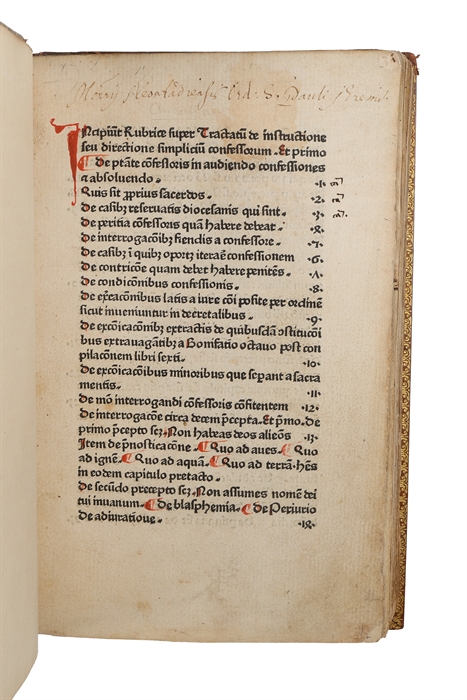 Ord: S. Pauli
Incipiūt Rubrice super Tractatū de instructione
seu directione simpliciū confessorum. Et primo
¶ De ptāte cōfessoris in audiendo confessiones
⁊ absoluendo. ·1·
Quis sit ꝓprius sacerdos. ·2·
De casibꝰ reseruatis diocesanis qui sint. ·3·
De peritia cōfessoris quā habere debeat. ·4·
De interrogacōibꝰ fiendis a confessore. ·5·
De casibꝰ ī quibꝰ oportꝫ iterari cōfessionem ·6·
De contricōe quam debet habere penitēs. ·7·
De condicōibus confessionis. ·8·
De excōicacōnibus latis a iure cōi posite per ordinē
sicut inueniuntur in decretalibus. ·9·
De excōicacōnibꝰ extractis de quibusdā ꝯstitucōi
bus extrauagātibꝰ a Bonifatio octauo post con
pilacōnem libri sexti. ·10·
De excōicacōnibus minoribus que sepant a sacra
mentis. ·11·
De mō interrogandi cōfessoris cōfitentem ·12·
De interrogacōe circa decem p̄cepta. Et p̄mo. de
primo p̄cepto sꝫ. Non habeas deos alienos ·13·
Item de p̄nosticacōne. ¶ Quo ad aues. ¶ Quo
ad ignē. ¶ Quo ad aquā. ¶ Quo ad terrā. Hēs
in eodem capitulo pretacto.
De secūdo precepto sꝫ. Non assumes nomē dei
tui inuanum. ¶ De blasphemia. ¶ De Periurio
De adiuratione. ·14·